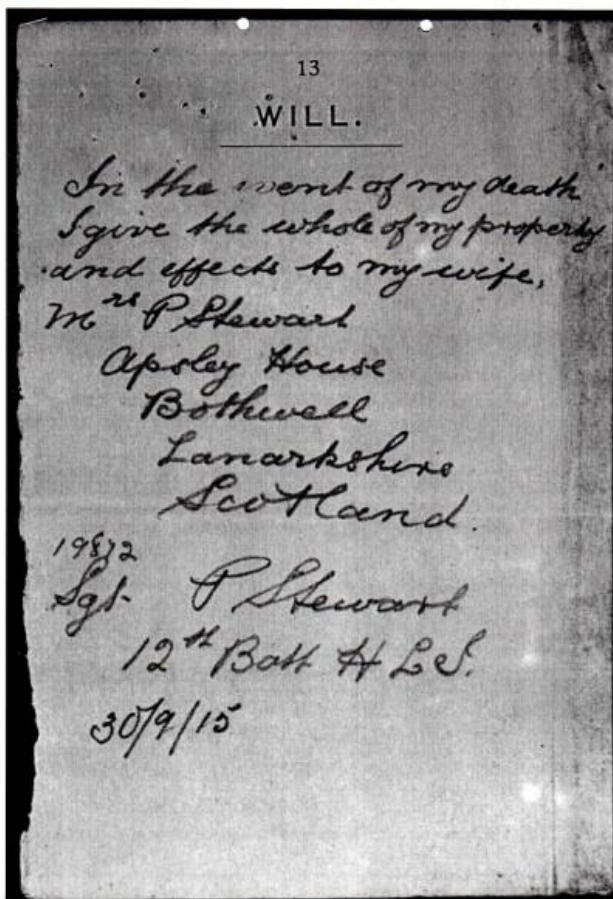 13
WILL.
In the event of my death
I give the whole of my property
and effects to my wife,
Mrs P Stewart
Apsley House
Bothwell
Lanarkshire
Scotland.
19872
Sgt. P Stewart
12th Batt H L I.
30/9/15